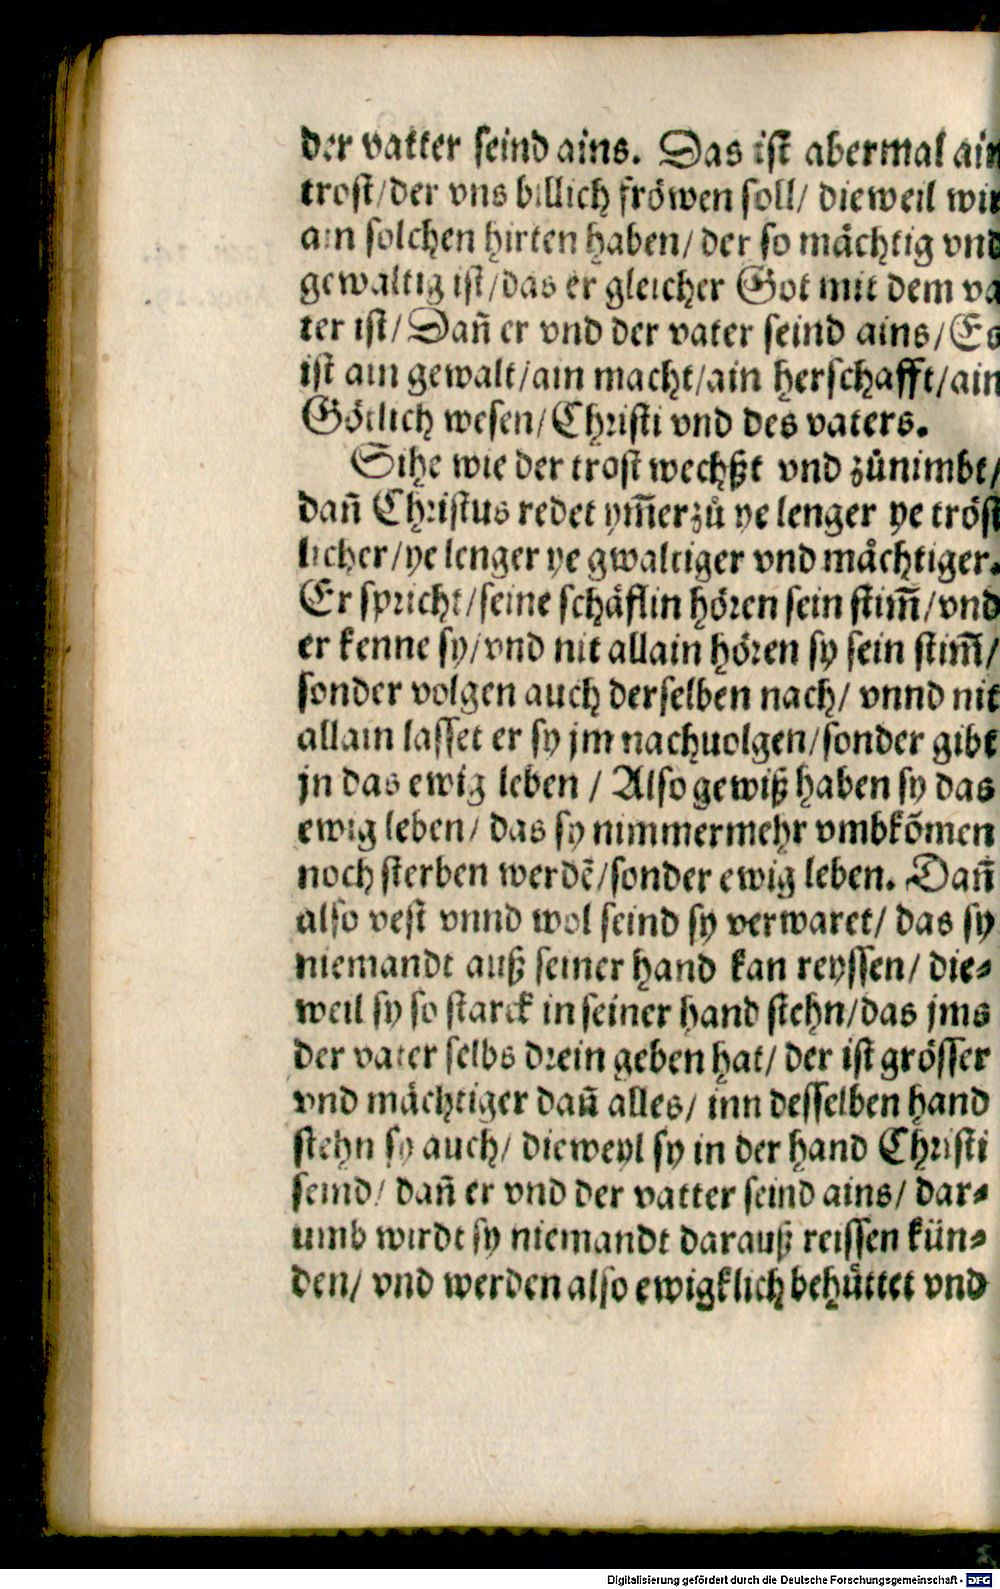 der vatter seind ains. Das ist abermal ain
trost/der vns billich fröwen soll/ dieweil wir
ain solchen hirten haben/ der so mächtig vnd
gewaltig ist/das er gleicher Got mit dem va
ter ist/Dañ er vnd der vater seind ains/Es
ist ain gewalt/ain macht/ain herschafft/ain
Götlich wesen/Christi vnd des vaters.
Sihe wie der trost wechßt vnd zůnimbt/
dañ Christus redet ym̃erzů ye lenger ye tröst
licher/ye lenger ye gwaltiger vnd mächtiger.
Er spricht/seine schäflin hören sein stim̃/vnd
er kenne sy/vnd nit allain hören sy sein stim̃/
sonder volgen auch derselben nach/ vnnd nit
allain lasset er sy jm nachuolgen/sonder gibt
jn das ewig leben / Also gewiß haben sy das
ewig leben/ das sy nimmermehr vmbkõmen
noch sterben werdẽ/sonder ewig leben. Dañ
also vest vnnd wol seind sy verwaret/ das sy
niemandt auß seiner hand kan reyssen/ die⸗
weil sy so starck in seiner hand stehn/das jms
der vater selbs drein geben hat/ der ist grösser
vnd mächtiger dañ alles/ inn desselben hand
stehn sy auch/ dieweyl sy in der hand Christi
seind/ dañ er vnd der vatter seind ains/ dar⸗
umb wirdt sy niemandt darauß reissen kün⸗
den/ vnd werden also ewigklich behüttet vnd
Digitalisierung gefördert durch die Deutsche Forschungsgemeinschaft - DFG